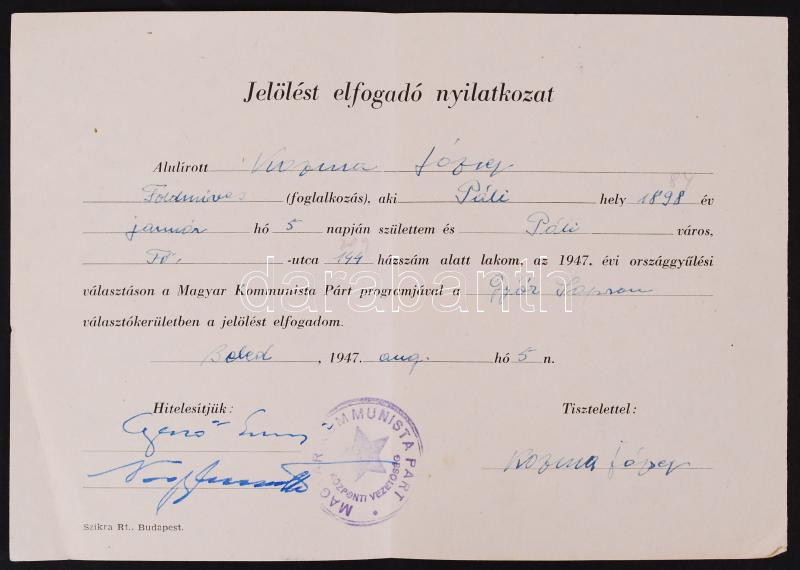 Jelölést elfogadó nyilatkozat
Alulírott Kozma József
Földmüves (foglalkozás), aki Páli hely 1898 év
január hó 5 napján születtem és Páli város,
Fő -utca 144 házszám alatt lakom, az 1947. évi országgyűlési
választáson a Magyar Kommunista Párt programjával a Győr Sopron
választókerületben a jelölést elfogadom.
Beled, 1947. aug. hó 5 n.
Hitelesítjük: Tisztelettel:
Kozma József
MAGYAR KOMMUNISTA PÁRT
KÖZPONTI VEZETŐSÉG
Szikra Rt., Budapest.
darabanth